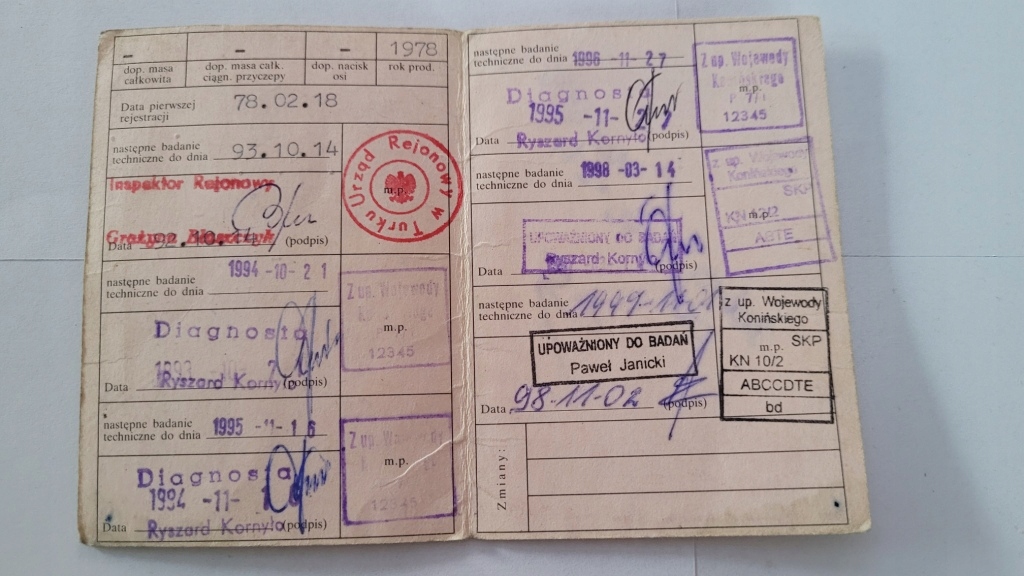 – – – 1978
dop. masa całkowita
dop. masa całk. ciągn. przyczepy
dop. nacisk osi
rok prod.
Data pierwszej rejestracji 78.02.18
następne badanie
techniczne do dnia 93.10.14
Inspektor Rejonowy
Grażyna
Data 92.10. (podpis)
Urząd Rejonowy w Turku
m.p.
następne badanie
techniczne do dnia 1994-10-21
Diagnosta
Data Ryszard Kornyło (podpis)
Z up. Wojewody
m.p.
12345
następne badanie
techniczne do dnia 1995-11-16
Diagnosta
1994-11-
Data Ryszard Kornyło (podpis)
Z up.
m.p.
12345
następne badanie
techniczne do dnia 1996-11-27
Diagnosta
1995-11-
Data Ryszard Kornyło (podpis)
Z up. Wojewody
Konińskiego
m.p.
12345
następne badanie
techniczne do dnia 1998-03-14
UPOWAŻNIONY DO BADAŃ
Ryszard Kornyło
Data (podpis)
z up. Wojewody
Konińskiego
SKP
m.p.
następne badanie
techniczne do dnia 1999-11-
UPOWAŻNIONY DO BADAŃ
Paweł Janicki
Data 98-11-02 (podpis)
z up. Wojewody
Konińskiego
m.p. SKP
KN 10/2
ABCCDTE
bd
Zmiany: